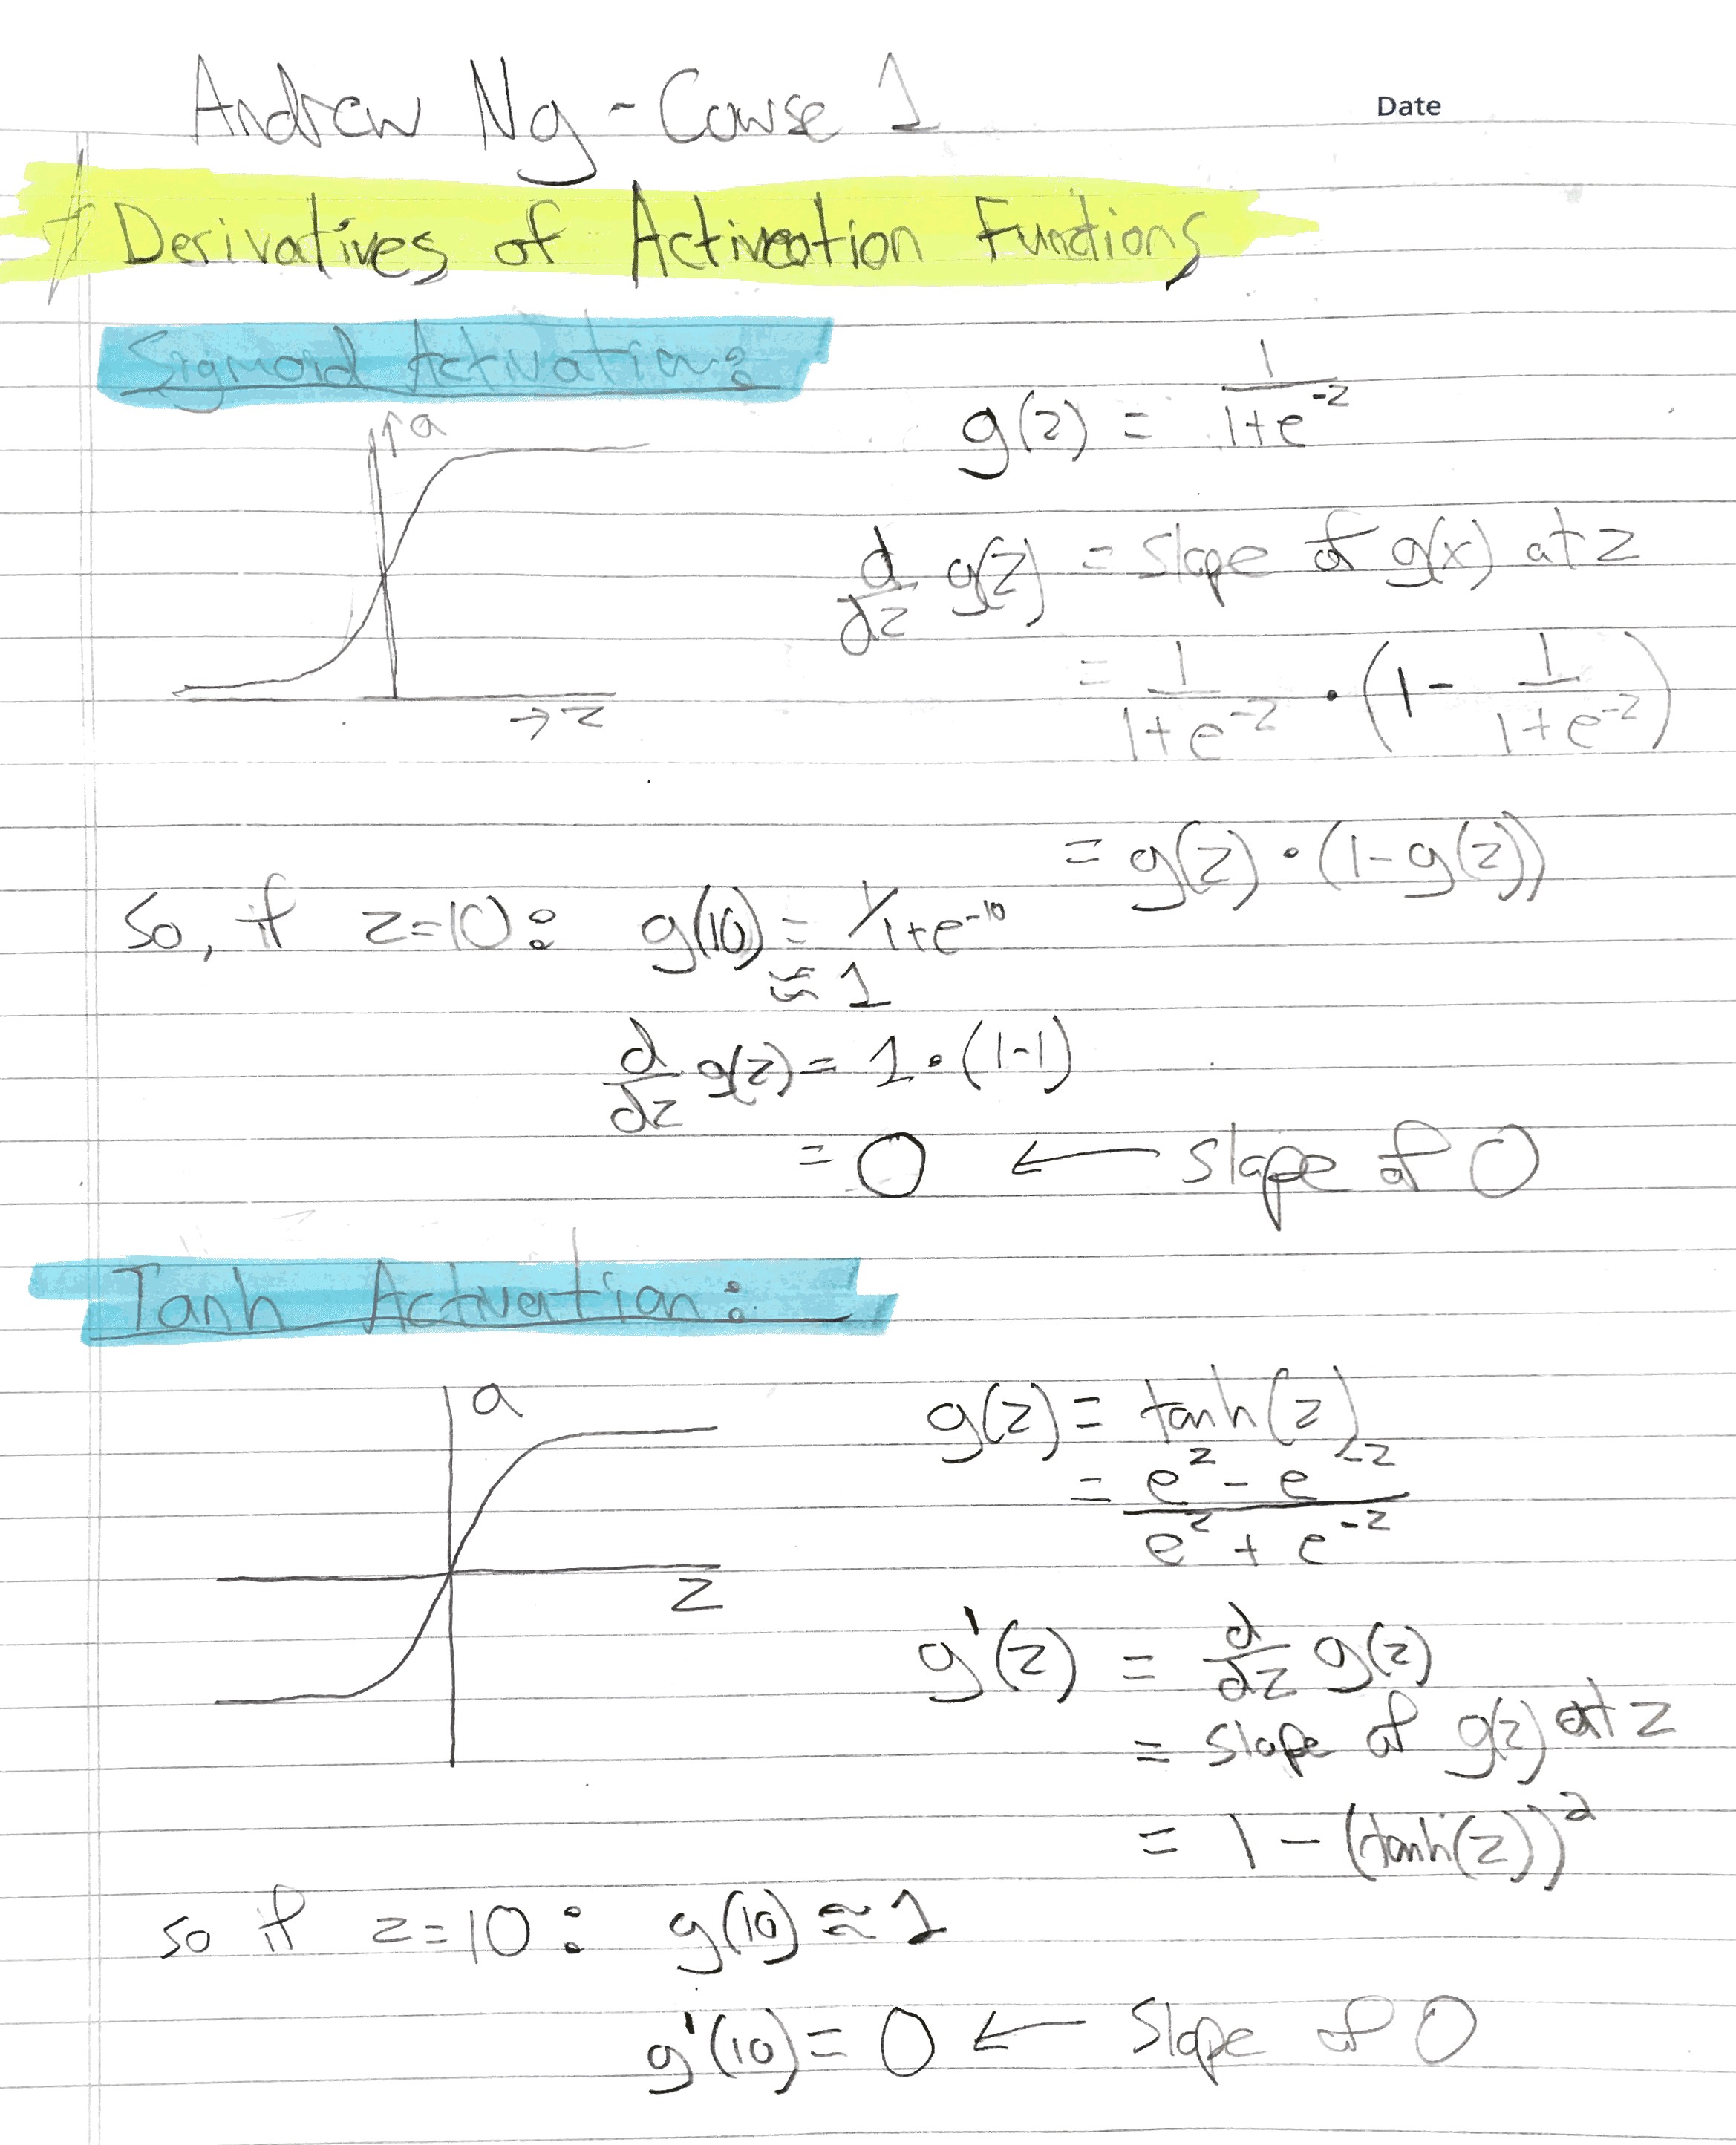 Andrew Ng - Course 1
Date
Derivatives of Activation Functions
Sigmoid Activation:
a
g(z) = 1/(1+e^-z)
d/dz g(z) = slope of g(x) at z
= 1/(1+e^-z) · (1 - 1/(1+e^-z))
→ z
= g(z) · (1-g(z))
So, if z=10: g(10) = 1/1+e^-10
≈ 1
d/dz g(z) = 1 · (1-1)
= 0 ← slope of 0
Tanh Activation:
a
g(z) = tanh(z)
= (e^z - e^-z)/(e^z + e^-z)
z
g'(z) = d/dz g(z)
= slope of g(z) at z
= 1 - (tanh(z))^2
so if z=10: g(10) ≈ 1
g'(10) = 0 ← Slope of 0